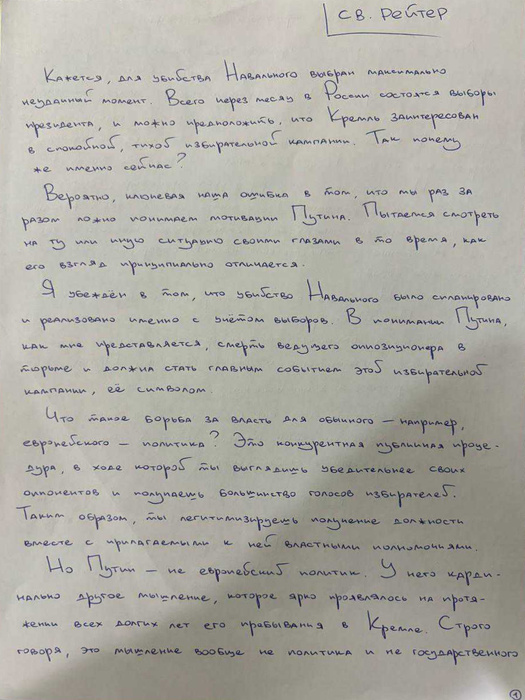 СВ. РЕЙТЕР
Кажется, для убийства Навального выбран максимально
неудачный момент. Всего через месяц в России состоятся выборы
президента, и можно предположить, что Кремль заинтересован
в спокойной, тихой избирательной кампании. Так почему
же именно сейчас?
Вероятно, ключевая наша ошибка в том, что мы раз за
разом ложно понимаем мотивации Путина. Пытаемся смотреть
на ту или иную ситуацию своими глазами в то время, как
его взгляд принципиально отличается.
Я убеждён в том, что убийство Навального было спланировано
и реализовано именно с учётом выборов. В понимании Путина,
как мне представляется, смерть ведущего оппозиционера в
тюрьме и должна стать главным событием этой избирательной
кампании, её символом.
Что такое борьба за власть для обычного – например,
европейского – политика? Это конкурентная публичная проце-
дура, в ходе которой ты выглядишь убедительнее своих
оппонентов и получаешь большинство голосов избирателей.
Таким образом, ты легитимизируешь получение должности
вместе с прилагаемыми к ней властными полномочиями.
Но Путин – не европейский политик. У него карди-
нально другое мышление, которое ярко проявлялось на протя-
жении всех долгих лет его пребывания в Кремле. Строго
говоря, это мышление вообще не политика и не государственного
1